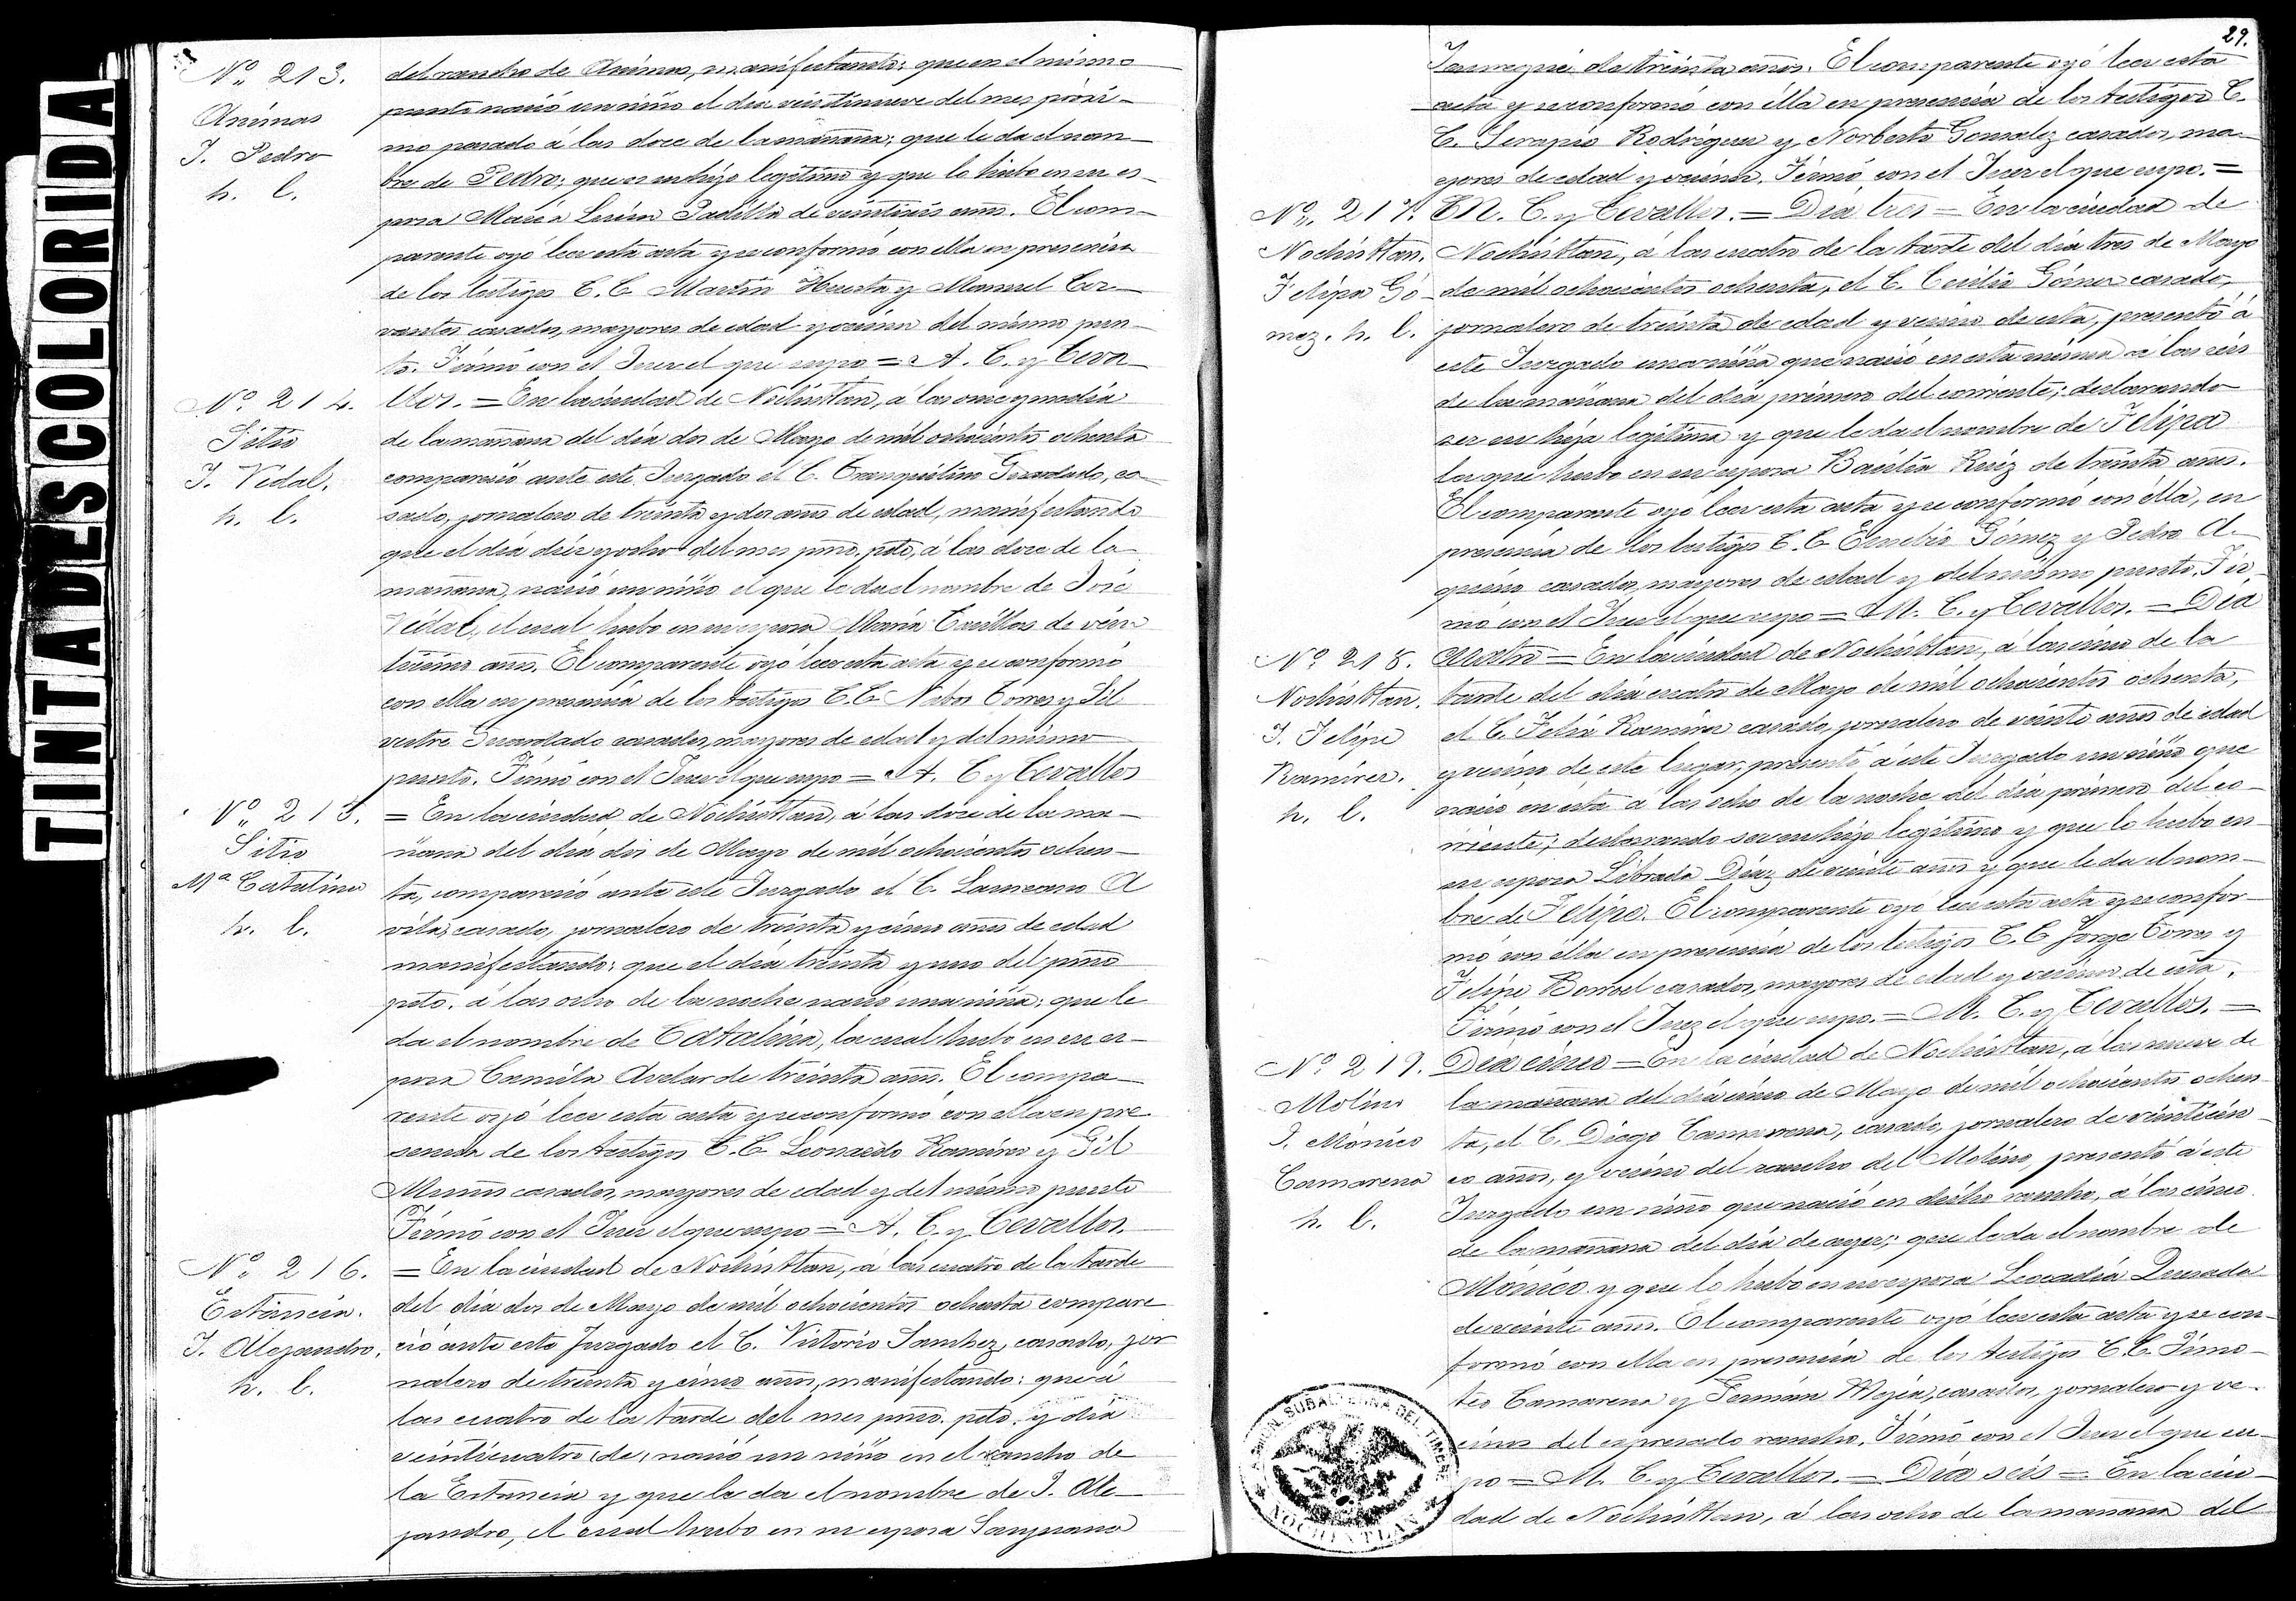 TINTA DESCOLORIDA
Nº 213.
Animas
J. Pedro
h. l.
del rancho de Animas, manifestando: que en el mismo
punto nació un niño el dia veintinueve del mes próxi-
mo pasado á las doce de la mañana; que le da el nom-
bre de Pedro; que es su hijo legítimo y que lo hubo en su es-
posa María Padilla de veintiseis años. El com-
parente oyó leer esta acta y se conformó con ella en presencia
de los testigos C. C. Martin Huerta y Manuel Cer-
vantes casados, mayores de edad y vecinos del mismo pun-
to. Firmó con el Juez el que supo = A. C. y Ceva
Nº 214.
Sitio
J. Vidal.
h. l.
llos. = En la ciudad de Nochistlan, á las once y media
de la mañana del día dos de Mayo de mil ochocientos ochenta
compareció ante este Juzgado el C. Tranquilino Guardado, ca-
sado, jornalero de treinta y dos años de edad, manifestando
que el día diez y ocho del mes pmo. pdo, á las doce de la
mañana, nació un niño el que le da el nombre de José
Vidal, el cual hubo en su esposa María de vein
ticinco años. El comparente oyó leer esta acta y se conformó
con ella en presencia de los testigos C. C. Nabor Torres y Sil
vestre Guardado casados, mayores de edad y del mismo
punto. Firmó con el Juez el que supo = A. C y Cevallos
Nº 215.
Sitio
Mª Catalina
h. l.
= En la ciudad de Nochistlan, á las doce de la ma-
ñana del dia dos de Mayo de mil ochocientos ochen-
ta, compareció ante este Juzgado el C. Laureano A
vila, casado, jornalero de treinta y cinco años de edad
manifestando: que el día treinta y uno del pmo
pdo. á las ocho de la noche nació una niña: que le
da el nombre de Catalina, la cual hubo en su es-
posa Camila Avelar de treinta años. El compa-
rente oyó leer esta acta y se conformó con ella en pre
sencia de los testigos C. C. Leonardo Ramirez y Gil
casados, mayores de edad y del mismo punto
Firmó con el Juez el que supo = A. C. y Cevallos.
Nº 216.
Estancia.
J. Alejandro.
h. l.
= En la ciudad de Nochistlan, á las cuatro de la tarde
del día dos de Mayo de mil ochocientos ochenta compare
ció ante este Juzgado el C. Victorio Sanchez, casado, jor
nalero de treinta y cinco años, manifestando: que á
las cuatro de la tarde del mes pmo. pdo. y día
veinticuatro de, nació un niño en el rancho de
la Estancia y que le da el nombre de J. Ale-
jandro, el cual hubo en su esposa
29.
de treinta años. El comparente oyó leer esta
acta y se conformó con élla en presencia de los testigos C.
C. Serapio Rodriguez y Norberto Gonzalez casados, ma-
yores de edad y vecinos. Firmó con el Juez el que supo. =
Nº 217.
Nochistlan.
Felipa Gó-
mez. h. l.
M. C. y Cevallos. = Día tres = En la ciudad de
Nochistlan, á las cuatro de la tarde del día tres de Mayo
de mil ochocientos ochenta, el C. Cecilio Gómez casado,
jornalero de treinta de edad y vecino de esta, presentó á
este Juzgado una niña que nació en esta misma á las seis
de la mañana del día primero del corriente; declarando
ser su hija legítima y que le da el nombre de Felipa
la que hubo en su esposa Basilia Ruiz de treinta años.
El comparente oyó leer esta acta y se conformó con élla, en
presencia de los testigos C. C. Eusebio Gómez y Pedro A-
quino casados, mayores de edad y del mismo punto. Fir-
mó con el Juez el que supo = M. C. y Cevallos. = Día
Nº 218.
Nochistlan.
J. Felipe
Ramírez.
h. l.
cuatro = En la ciudad de Nochistlan, á las cinco de la
tarde del día cuatro de Mayo de mil ochocientos ochenta,
el C. Felix Ramirez casado, jornalero de veinte años de edad
y vecino de este lugar, presentó á este Juzgado un niño que
nació en esta á las ocho de la noche del día primero del co-
rriente; declarando ser su hijo legítimo y que lo hubo en
su esposa Librada Díaz de veinte años y que le da el nom-
bre de Felipe. El comparente oyó leer esta acta y se confor-
mó con élla en presencia de los testigos C. C. Jorge Torres y
Felipe casados, mayores de edad y vecinos de esta.
Firmó con el Juez el que supo. = M. C. y Cevallos. =
Nº 219.
Molino
J. Mónico
Camarena
h. l.
Día cinco = En la ciudad de Nochistlan, á las nueve de
la mañana del día cinco de Mayo de mil ochocientos ochen-
ta, el C. Diego Camarena, casado, jornalero de veinticin-
co años, y vecino del rancho del Molino, presentó á este
Juzgado un niño que nació en dicho rancho, á las cinco
de la mañana del día de ayer; que le da el nombre de
Mónico y que lo hubo en su esposa Leocadia Quezada
de veinte años. El comparente oyó leer esta acta y se con-
formó con ella en presencia de los testigos C. C. Timo-
teo Camarena y Germán Mejia, casados, jornalero y ve-
cinos del espresado rancho. Firmó con el Juez el que su-
po = M. C. y Cevallos. = Día seis = En la ciu-
dad de Nochistlan, á las ocho de la mañana del
SUBALTERNA DEL TIMBRE
NOCHISTLAN